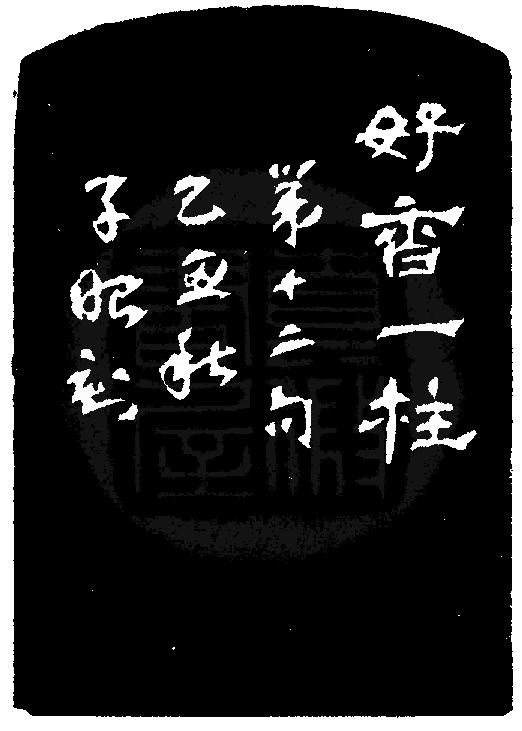 好香一柱
第十二句
乙丑秋
子昭刻